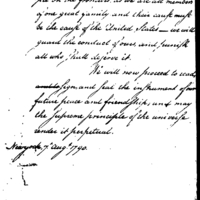 for the promise, as we are all members
of one great family and their cause must
be the cause of the United States – we will
guard the conduct of over and punish
all who shall deserve it.
We will now proceed to read
sign and seal the instrument of our
future peace and friendship, and may
the Supreme principle of the universe
render it perpetual.
New york 7 Aug 1790.